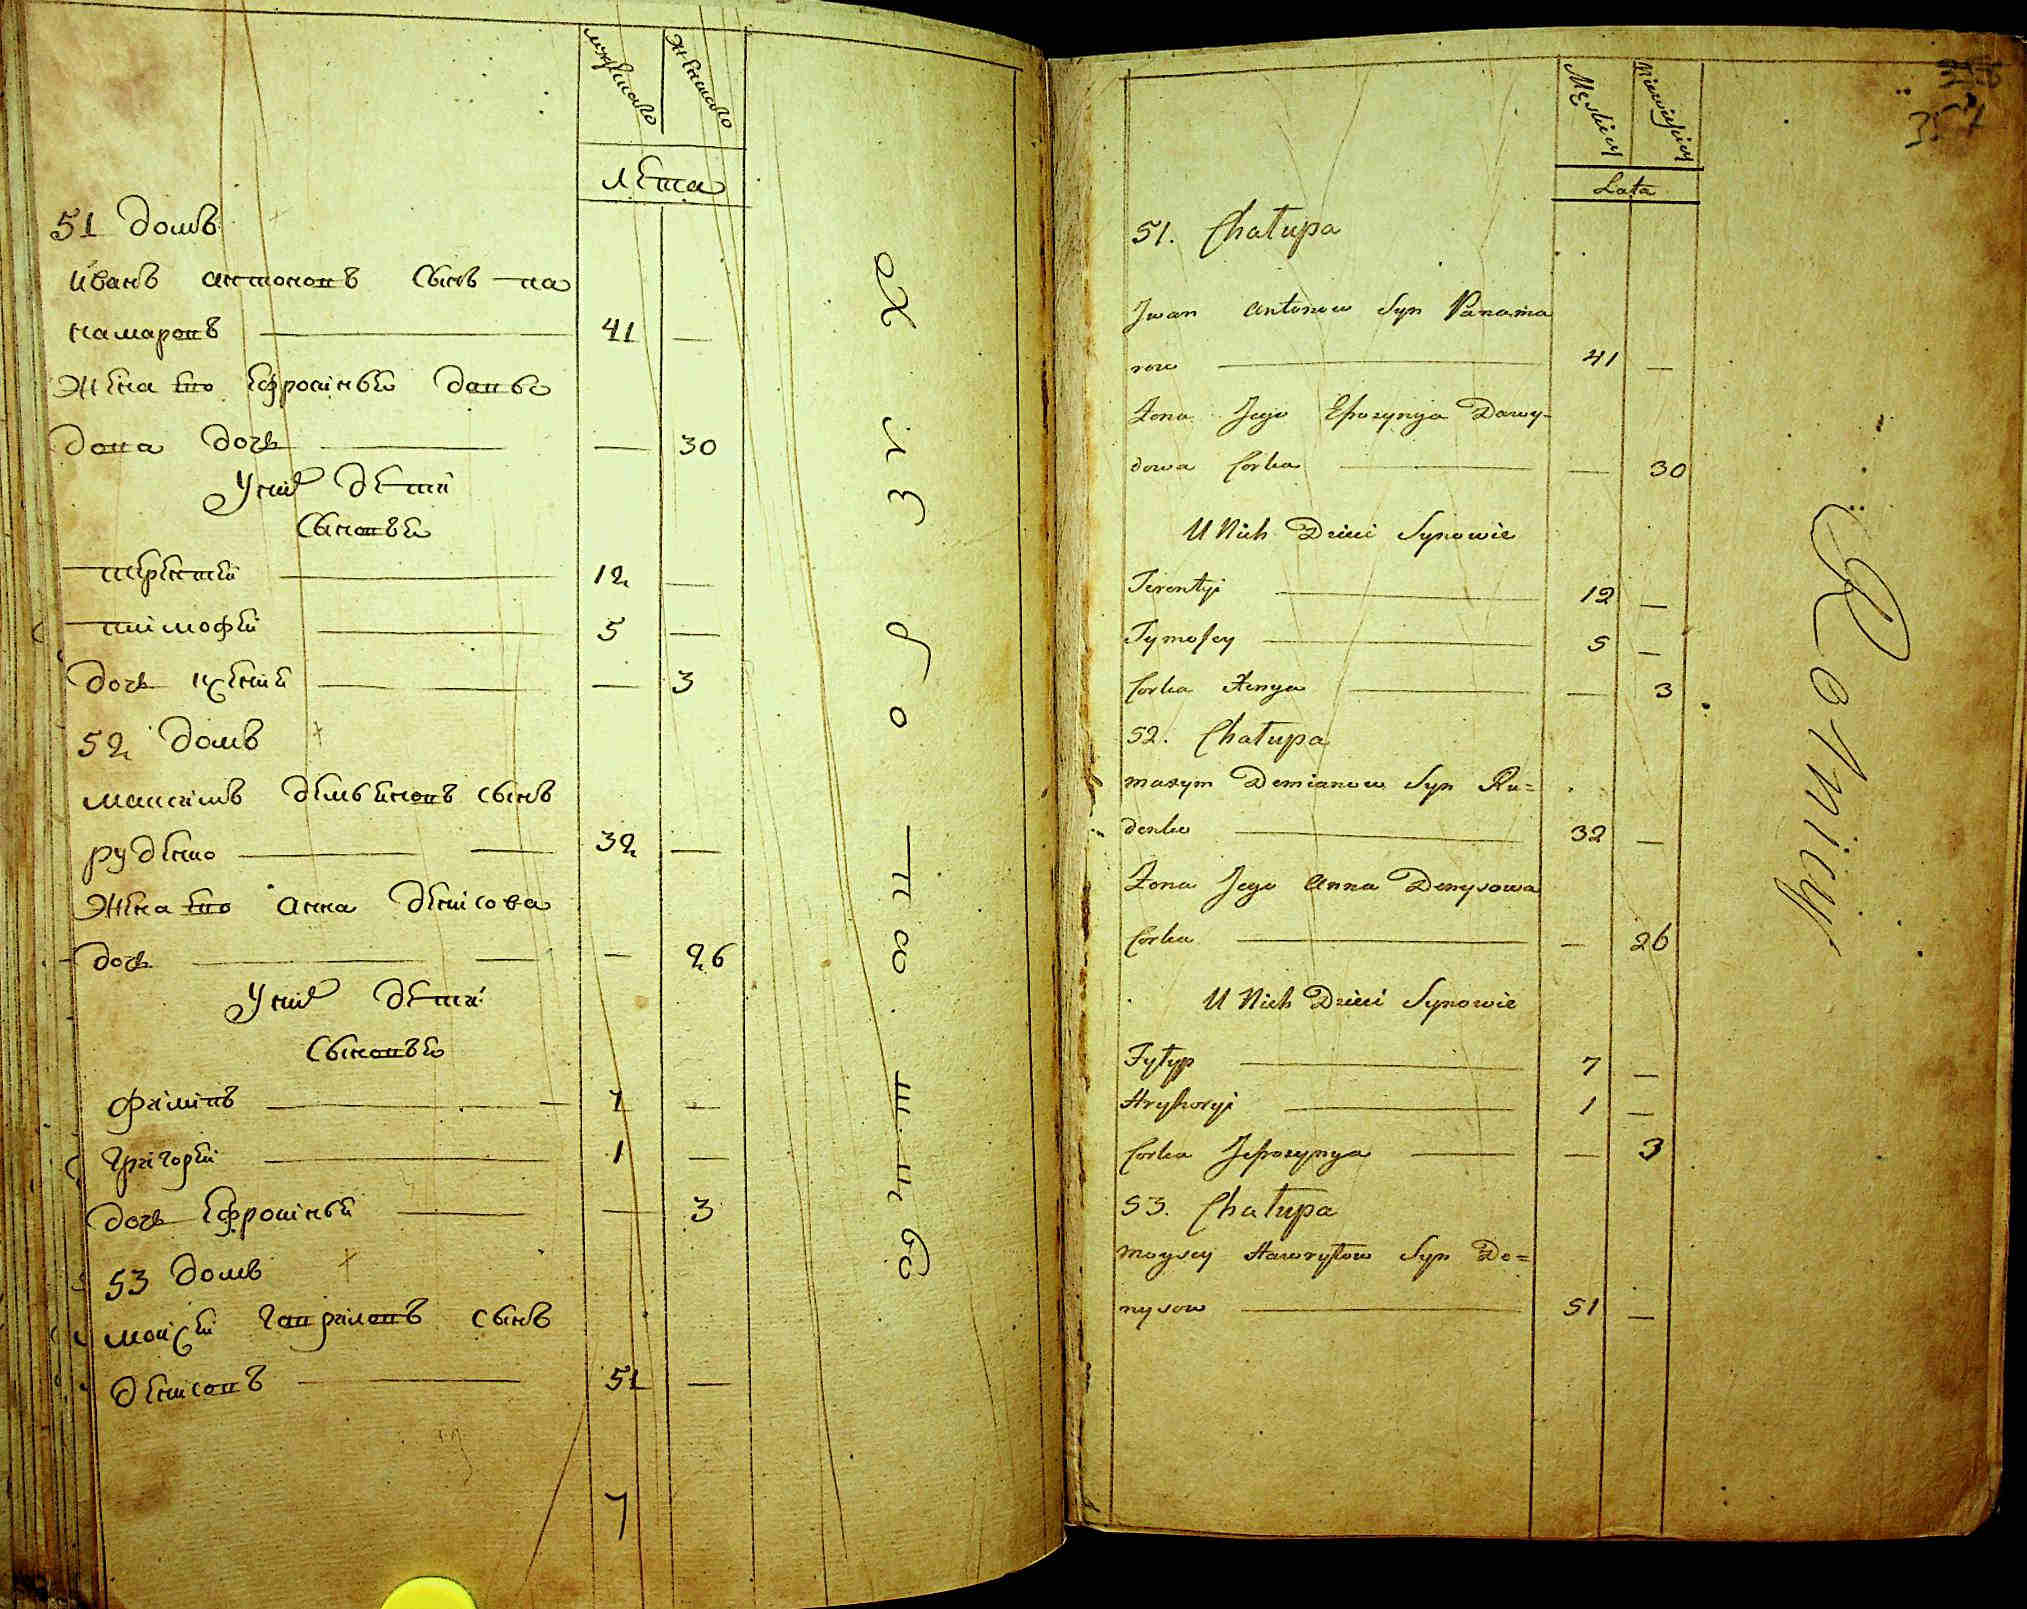 мужеска
женска
лета
51 домъ
иванъ антоновъ сынъ па
намаровъ 41 —
жена его ефросинья давы
дова дочь — 30
У них дети
Сыновья
терентей 12 —
тимофей 5 —
дочь ксения — 3
52 домъ
максимъ демьяновъ сынъ
руденко 32 —
жена его анна денисова
дочь — 26
У них дети
Сыновья
филипъ 7 —
григорей 1 —
дочь ефросинья — 3
53 домъ
моисей гавриловъ сынъ
денисовъ 51 —
7
Męskiey
Niewieśćiey
Lata
51. Chałupa
Jwan Antonow Syn Panama
row 41 —
Żona Jego Eprozynya Dawy-
dowa Corka — 30
U Nich Dzieci Synowie
Terentyi 12 —
Tymofey 5 —
Corka Xenya — 3
52. Chałupa
Maxym Demianow Syn Ru=
denko 32 —
Żona Jego Anna Denysowa
Corka — 26
U Nich Dzieci Synowie
Fyłyp 7 —
Hryhoryi 1 —
Corka Jeprozynya — 3
53. Chałupa
Moysey Hawryłow Syn De=
nysow 51 —